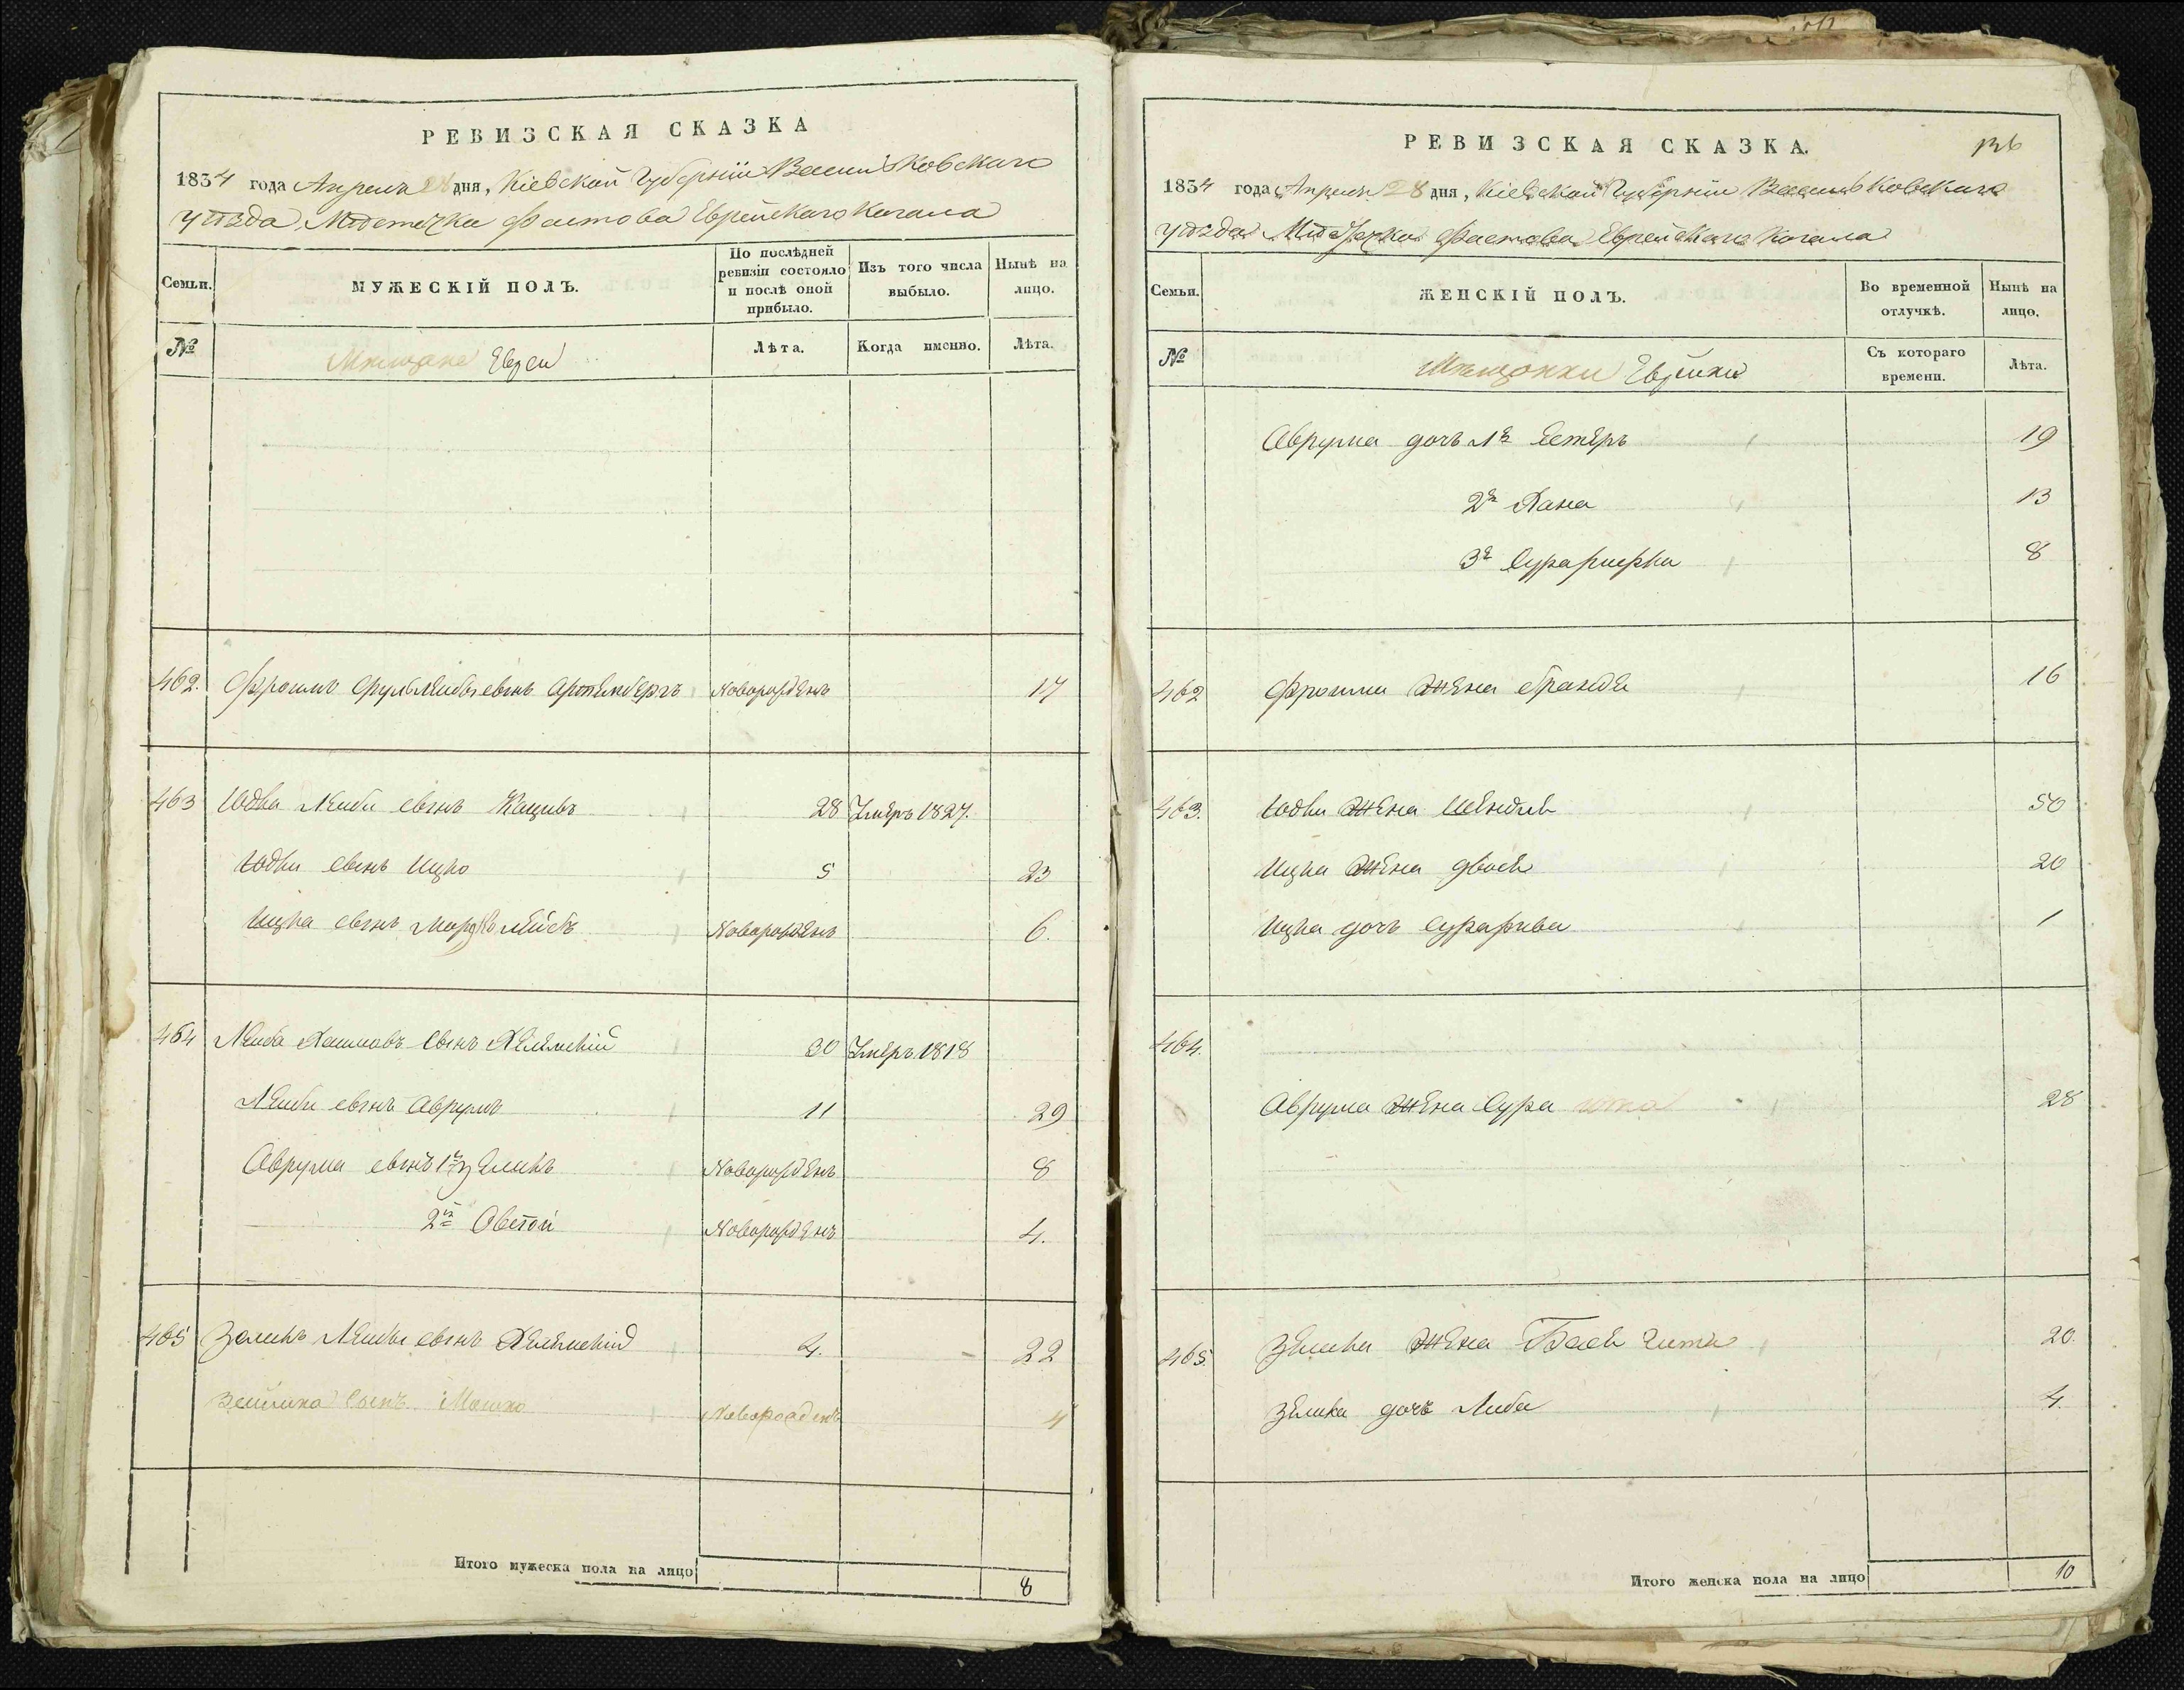 РЕВИЗСКАЯ СКАЗКА
1834 года Апреля 28 дня, Кіевской Губерніи Васильковскаго
уѣзда Мѣстечка Фастова Еврейскаго Кагала
Семьи.
МУЖЕСКІЙ ПОЛЪ.
По послѣдней ревизіи состояло и послѣ оной прибыло.
Изъ того числа выбыло.
Нынѣ на лицо.
№
Мѣщане Евреи
Лѣта.
Когда именно.
Лѣта.
462. Фроимъ сынъ новорожденъ 17
463 Юдка Лейбы сынъ Кацывъ 28 Умеръ 1827.
Юдки сынъ Ицко 5 23
Ицка сынъ Мордко новорожденъ 6.
464 Лейба Хаимовъ сынъ 30 Умеръ 1818
Лейбы сынъ Аврумъ 11 29
Аврума сынъ 1й Зеликъ новорожденъ 8
2й новорожденъ 4.
465 Зеликъ Лейбы сынъ 4. 22
Зейлика сынъ Мошко новорожденъ 4
Итого мужеска пола на лицо 8
РЕВИЗСКАЯ СКАЗКА.
136
1834 года Апреля 28 дня, Кіевской Губерніи Васильковскаго
уѣзда Мѣстечка Фастова Еврейскаго Кагала
Семьи.
ЖЕНСКІЙ ПОЛЪ.
Во временной отлучкѣ.
Нынѣ на лицо.
№
Мѣщанки Еврейки
Съ котораго времени.
Лѣта.
Аврума дочь 1я Естеръ 19
2я Хана 13
3я Сурарифка 8
462 Фроима жена Бранде 16
463. Юдки жена Шендля 50
Ицка жена Двося 20
Ицка дочь Сурарива 1
464.
Аврума жена Сура 28
465. Зелика жена Бася Гитя 20.
Зелика дочь Либа 4.
Итого женска пола на лицо 10